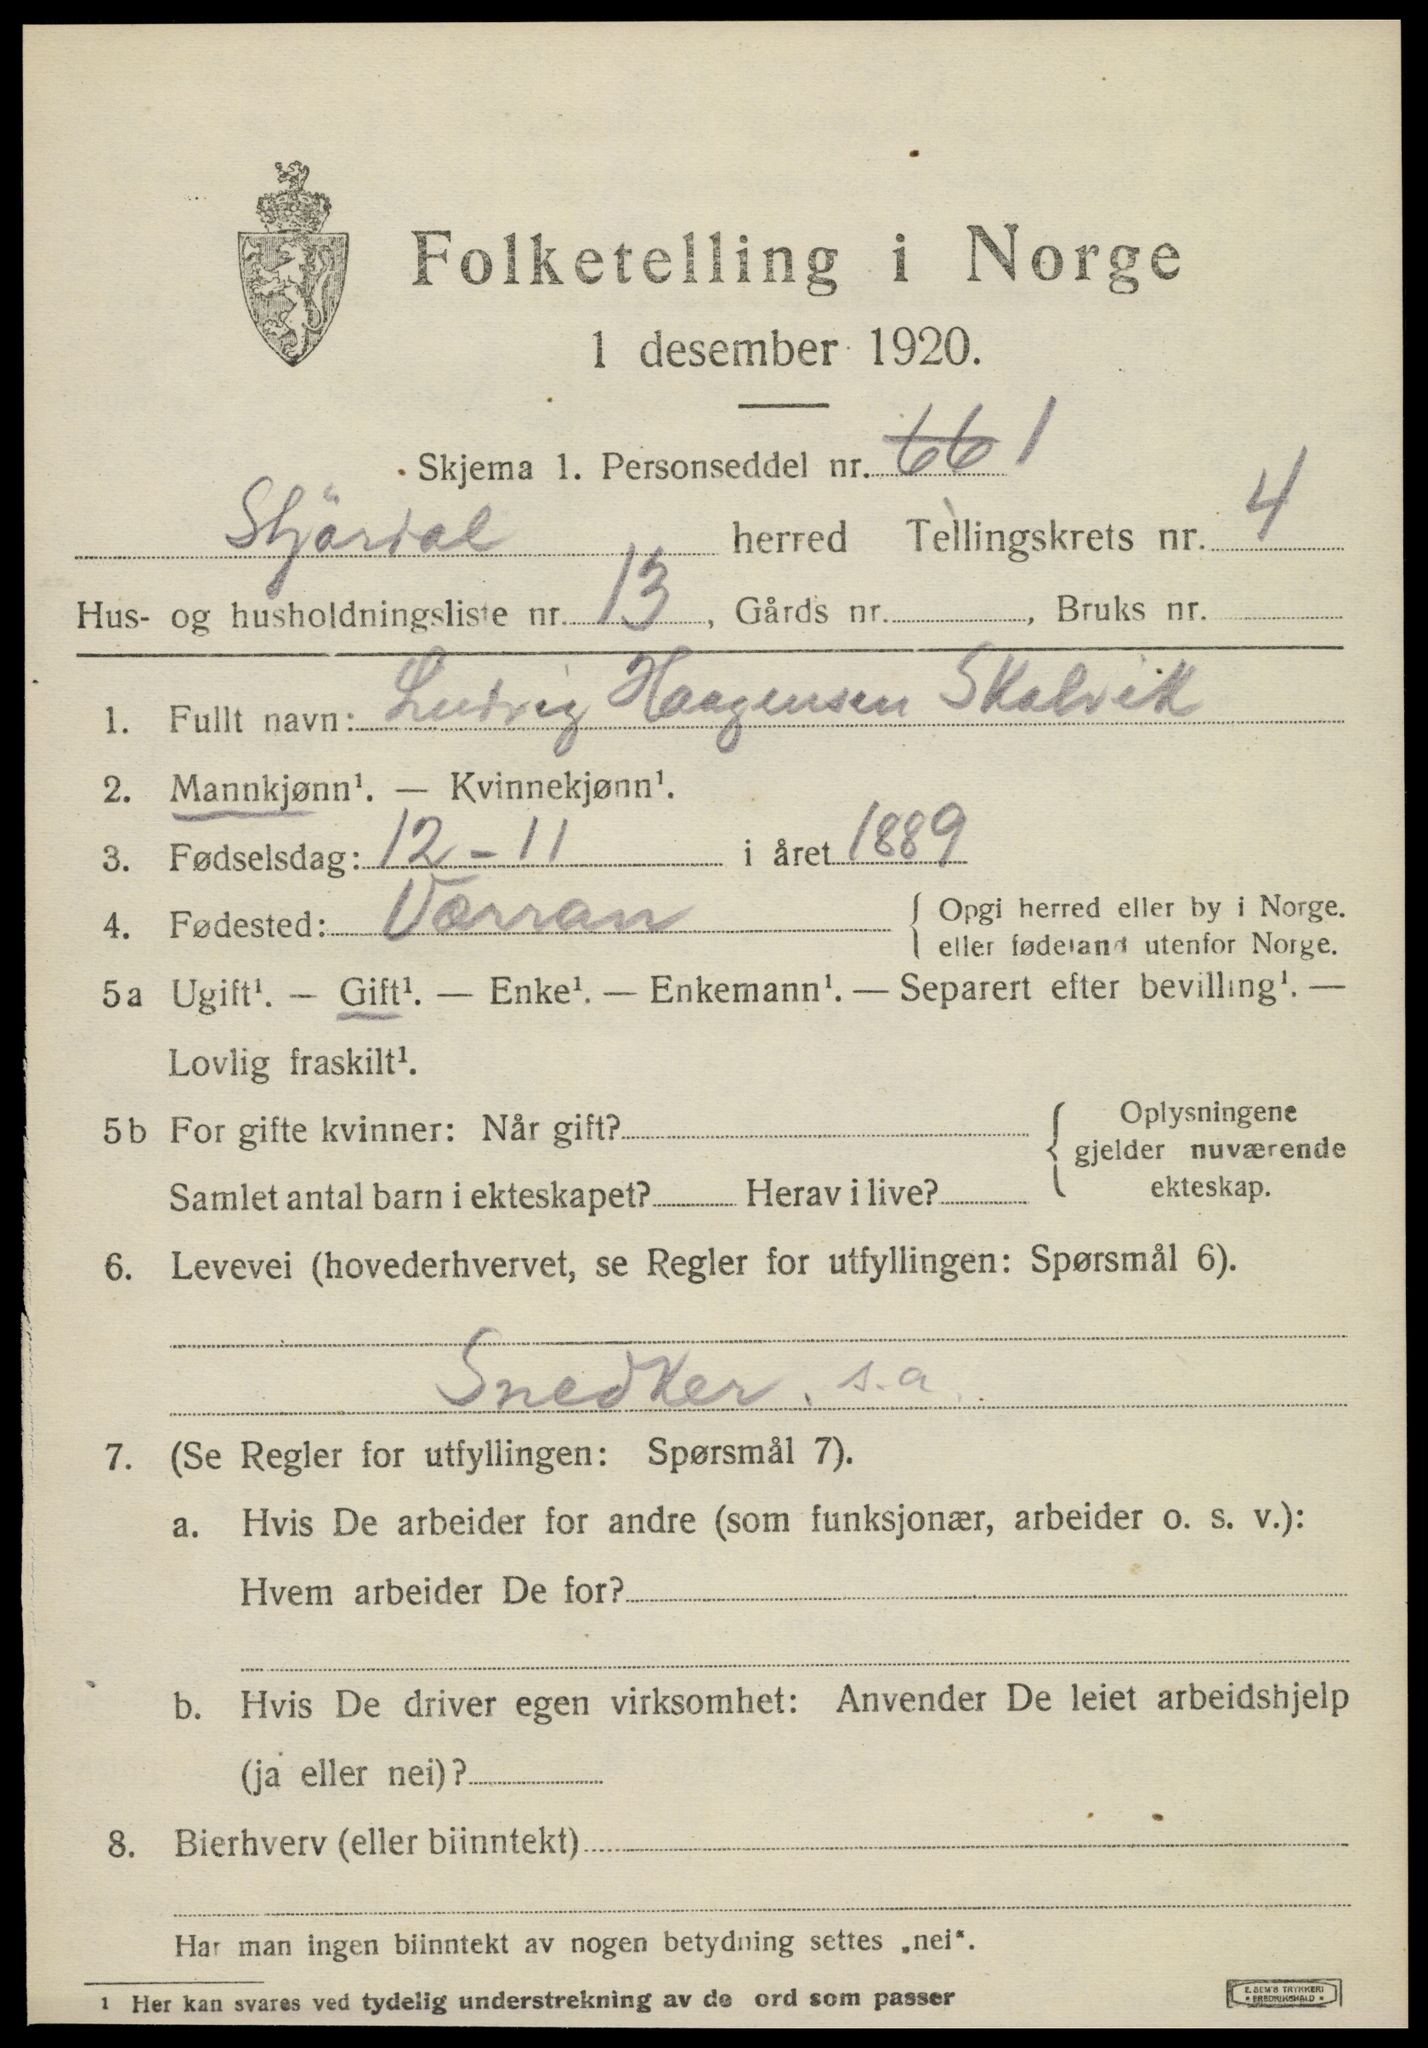 Folketelling i Norge
1 desember 1920.
Skjema 1. Personseddel nr. 66 1
Stjørdal herred Tellingskrets nr. 4
Hus- og husholdningsliste nr. 13, Gårds nr. , Bruks nr.
1. Fullt navn: Ludvig Haagensen Skalvik
2. Mannkjønn¹. — Kvinnekjønn¹.
3. Fødselsdag: 12-11 i året 1889
4. Fødested: Værran { Opgi herred eller by i Norge.
eller fødeland utenfor Norge.
5a Ugift¹. — Gift¹. — Enke¹. — Enkemann¹. — Separert efter bevilling¹. —
Lovlig fraskilt¹.
5b For gifte kvinner: Når gift?
Samlet antal barn i ekteskapet? Herav i live?
{ Oplysningene
gjelder nuværende
ekteskap.
6. Levevei (hovederhvervet, se Regler for utfyllingen: Spørsmål 6).
Snedker. s.a.
7. (Se Regler for utfyllingen: Spørsmål 7).
a. Hvis De arbeider for andre (som funksjonær, arbeider o. s. v.):
Hvem arbeider De for?
b. Hvis De driver egen virksomhet: Anvender De leiet arbeidshjelp
(ja eller nei)?
8. Bierhverv (eller biinntekt)
Har man ingen biinntekt av nogen betydning settes „nei".
¹ Her kan svares ved tydelig understrekning av de ord som passer
E. SEM'S TRYKKERI
* FREDRIKSHALD *